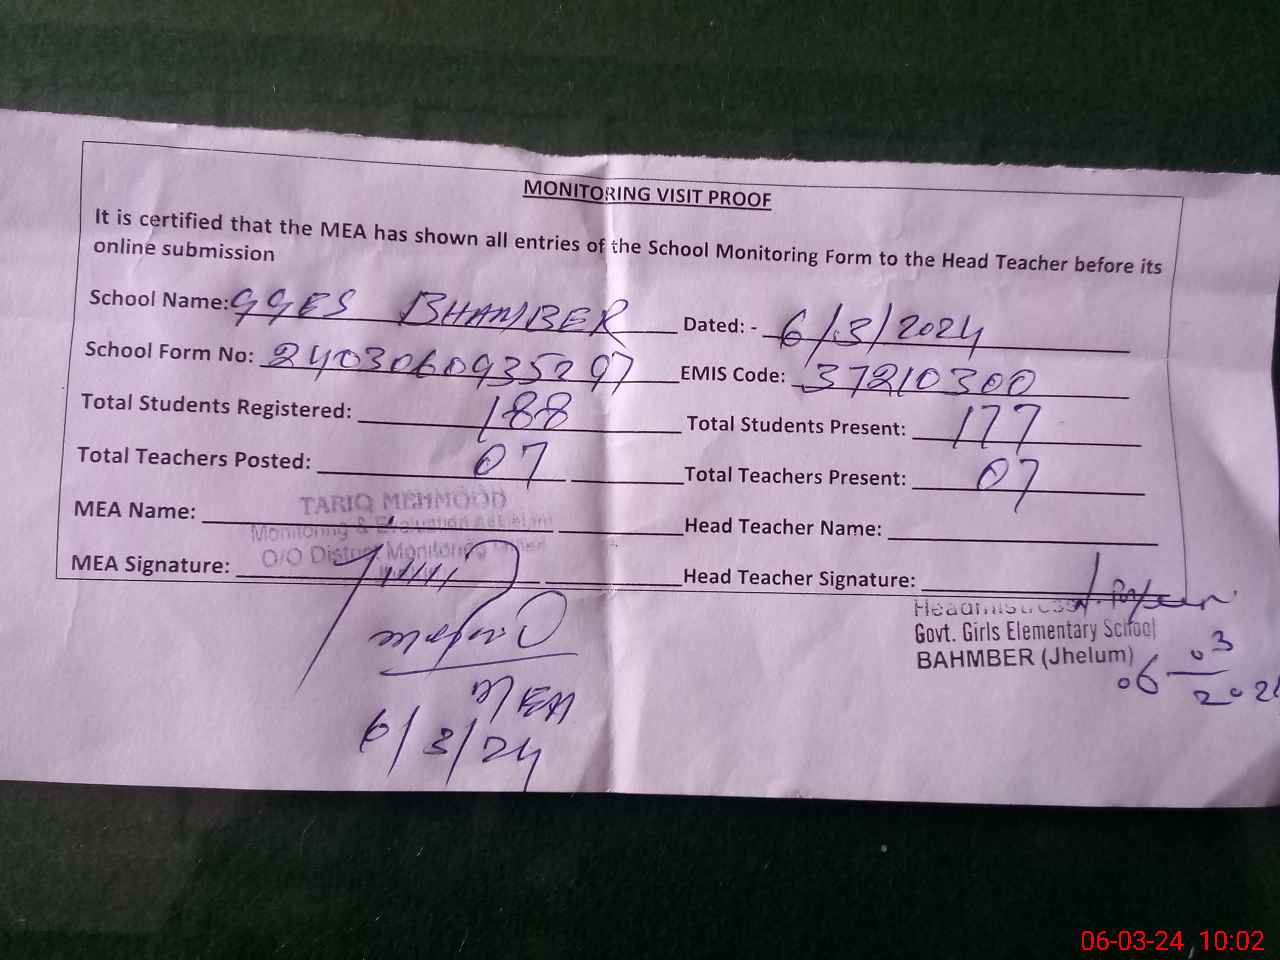 MONITORING VISIT PROOF
It is certified that the MEA has shown all entries of the School Monitoring Form to the Head Teacher before its
online submission
School Name: GGES BHAMBER Dated: - 6/3/2024
School Form No: 2403060935297 EMIS Code: 37210300
Total Students Registered: 188 Total Students Present: 177
Total Teachers Posted: 07 Total Teachers Present: 07
TARIQ MEHMOOD
MEA Name: Head Teacher Name:
Monitoring & Evaluation Assistant
O/O District Monitoring
MEA Signature: Head Teacher Signature:
Headmistress
Govt. Girls Elementary School
BAHMBER (Jhelum)
06 03
MEA
6/3/24
06-03-24, 10:02